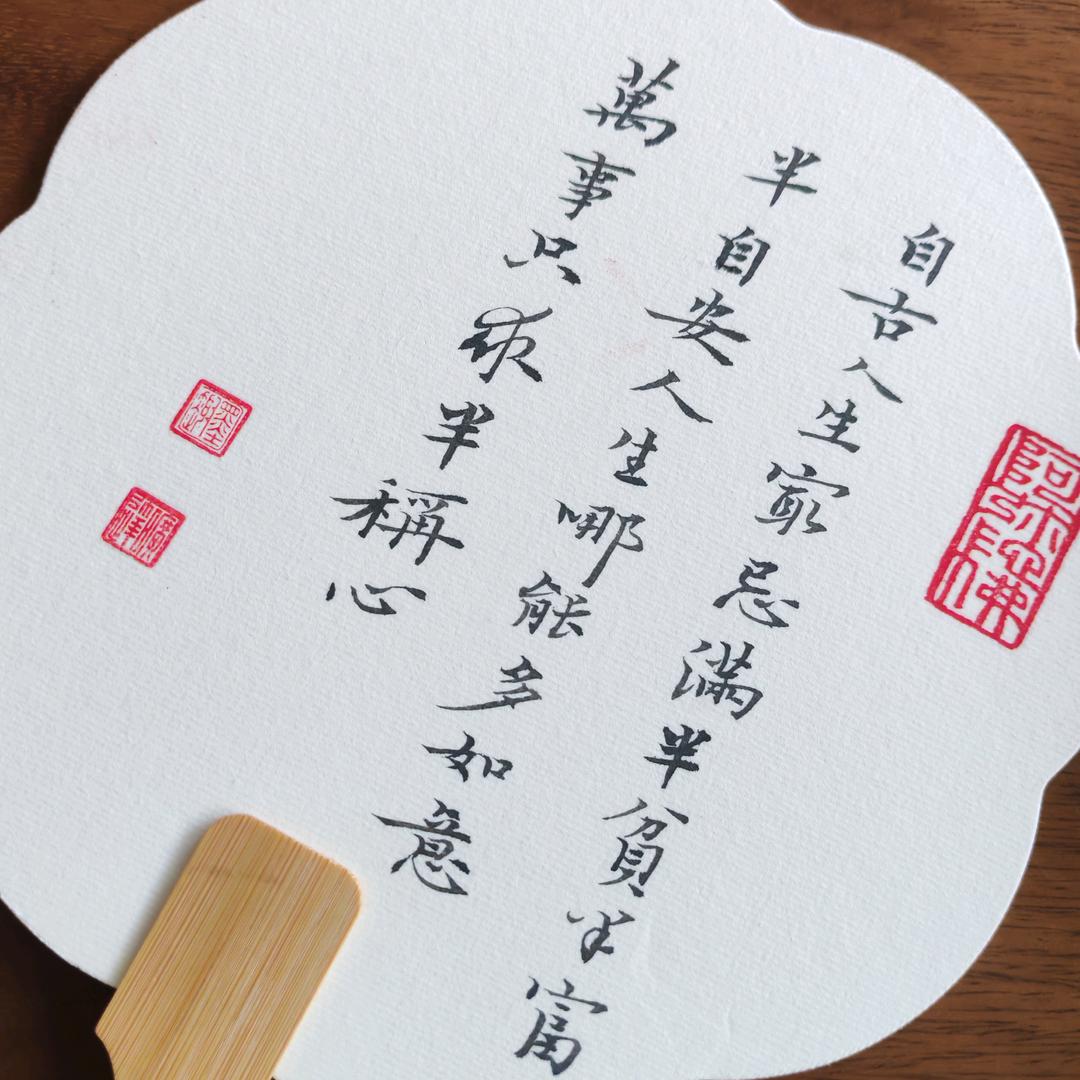 阿弥陀佛
自古人生最忌滿半貧半富
半自安人生哪能多如意
萬事只求半稱心